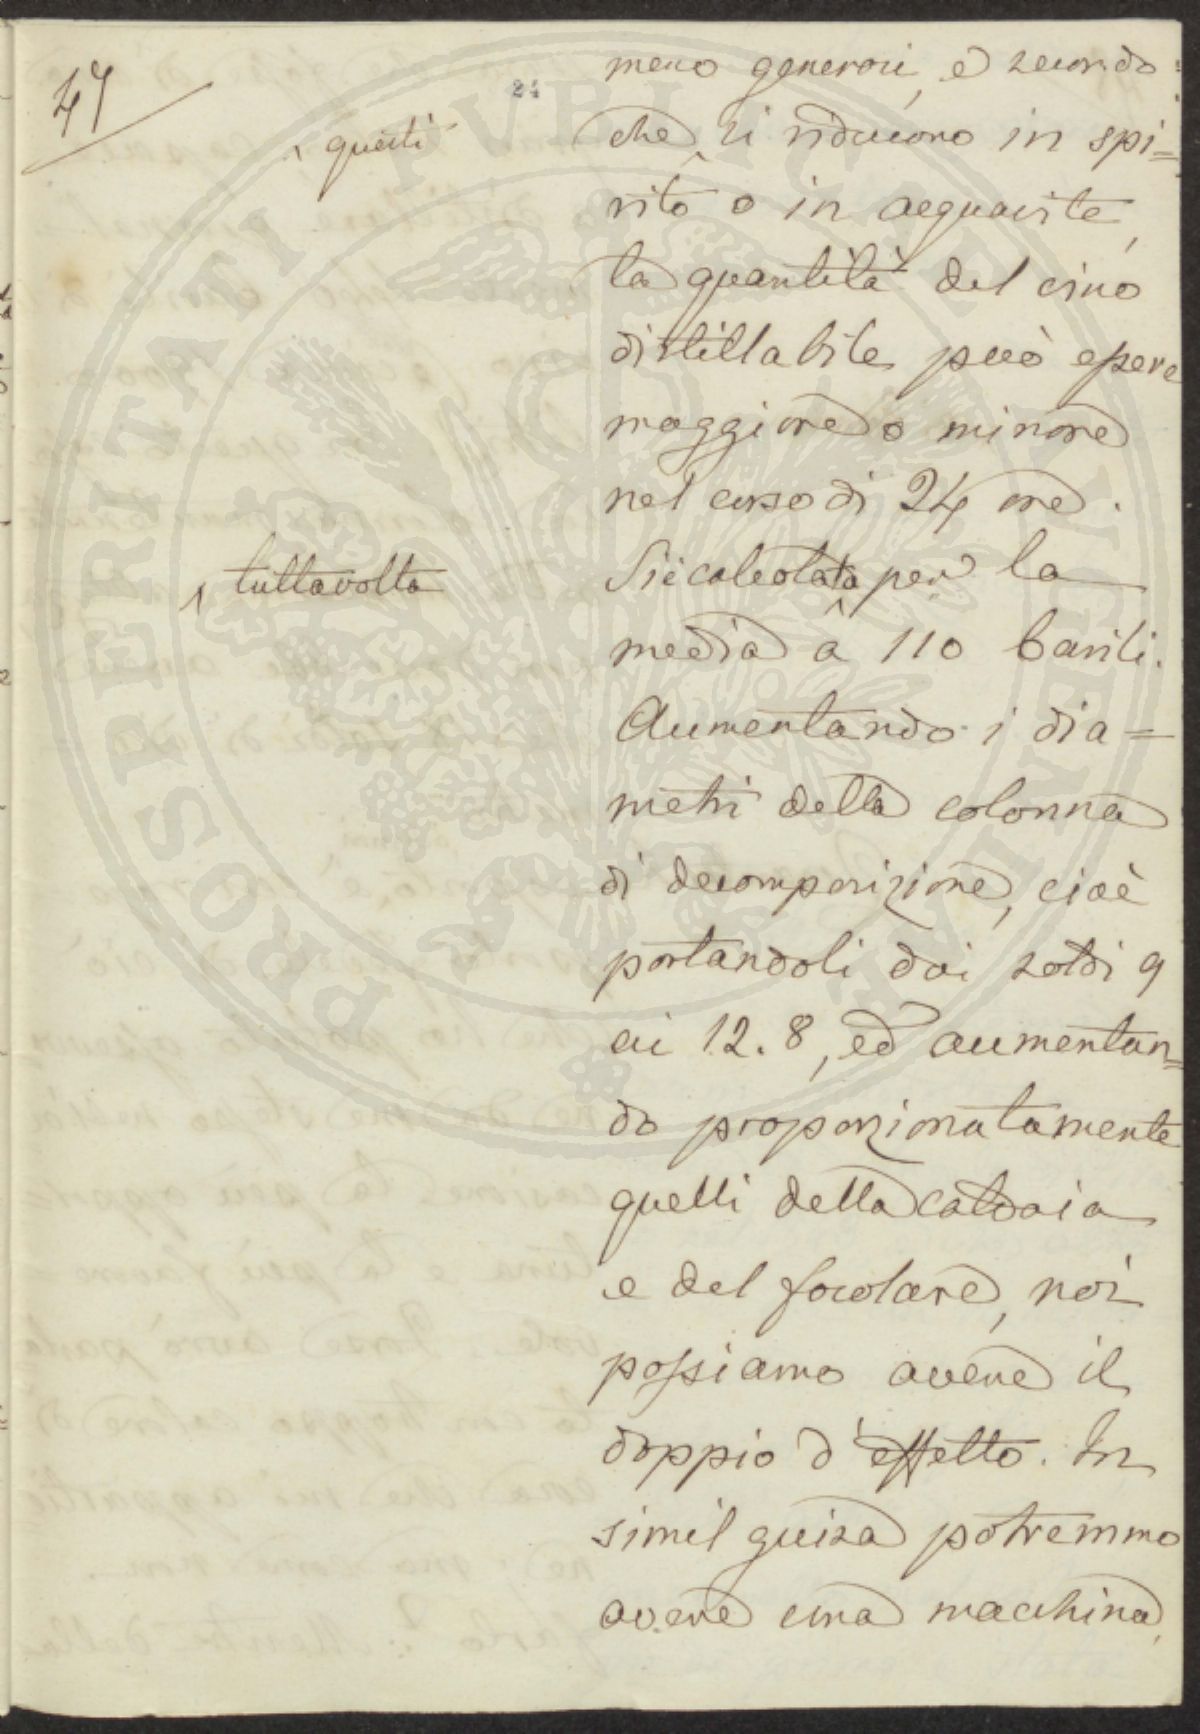 47
24
meno generosi, e secondo
‸ questi
che ‸ si riducono in spi=
rito o in acquavite,
la quantità del vino
distillabile può essere
maggiore o minore
nel corso di 24 ore.
‸ tuttavolta
Si è calcolata ‸ per la
media a 110 barili.
Aumentando i dia=
metri della colonna
di decomposizione, cioè
portandoli dai soldi 9
ai 12.8, ed aumentan=
do proporzionatamente
quelli della caldaia
e del focolare, noi
possiamo avere il
doppio d'effetto. In
simil guisa potremmo
avere una macchina,
PROSPERITATI PUBLICAE